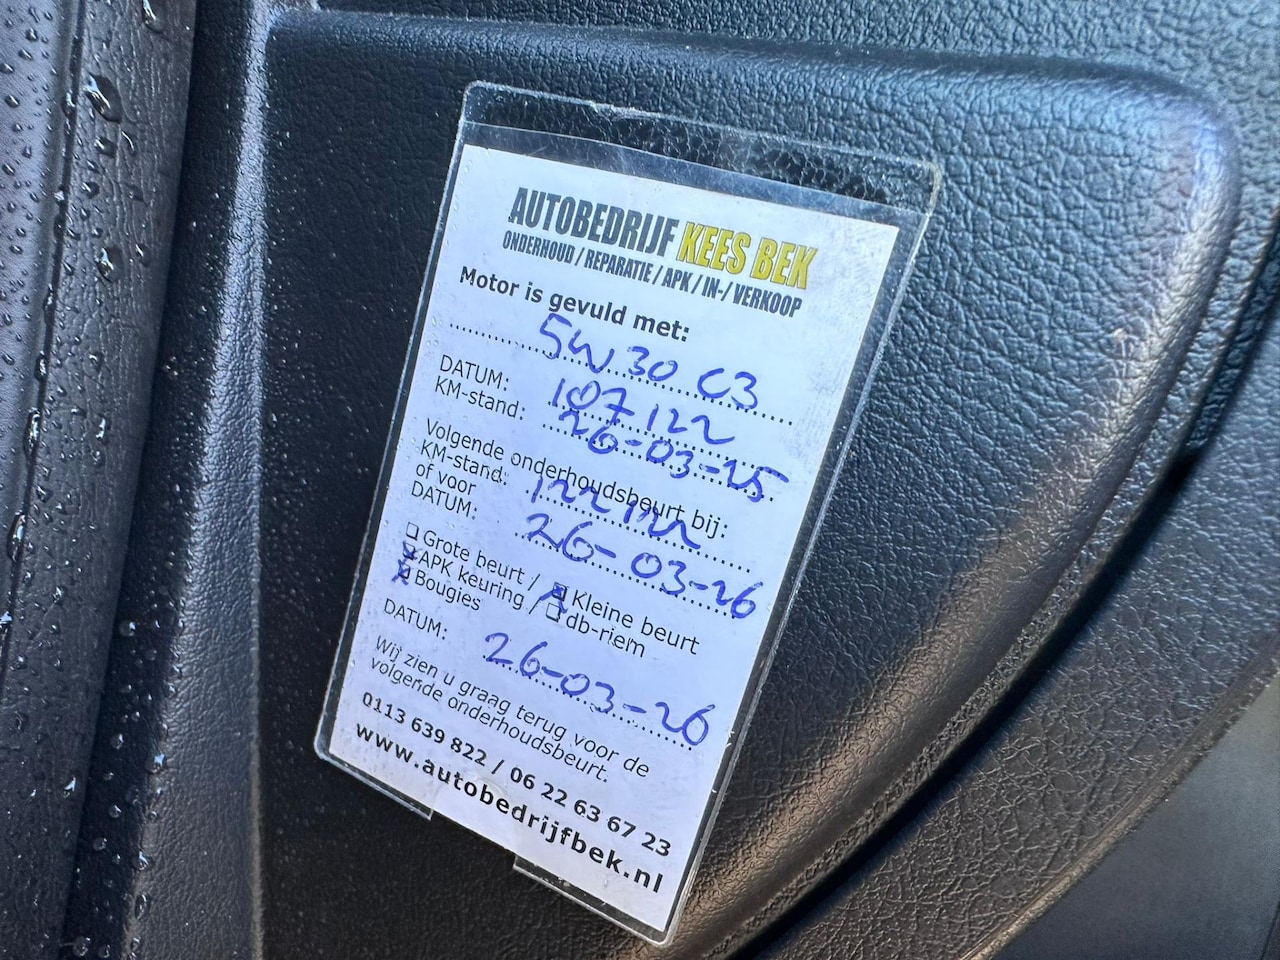 AUTOBEDRIJF KEES BEK
ONDERHOUD / REPARATIE / APK / IN-/ VERKOOP
Motor is gevuld met:
5W30 C3
DATUM: 107122
KM-stand: 26-03-25
Volgende onderhoudsbeurt bij:
KM-stand: 122122
of voor
DATUM: 26-03-26
Grote beurt / Kleine beurt
APK keuring / db-riem
Bougies
DATUM: 26-03-26
Wij zien u graag terug voor de
volgende onderhoudsbeurt.
0113 639 822 / 06 22 63 67 23
www.autobedrijfbek.nl